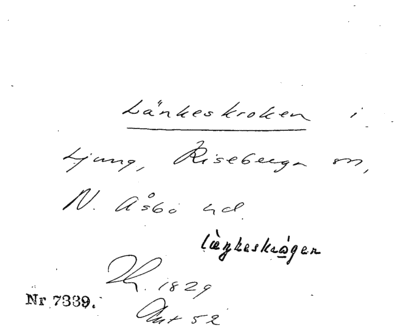 Länkeskroken i
Ljung, Riseberga sn,
N. Åsbo hd.
läŋkeskrågen
Lh. 1829
Akt 52
Nr 7339.